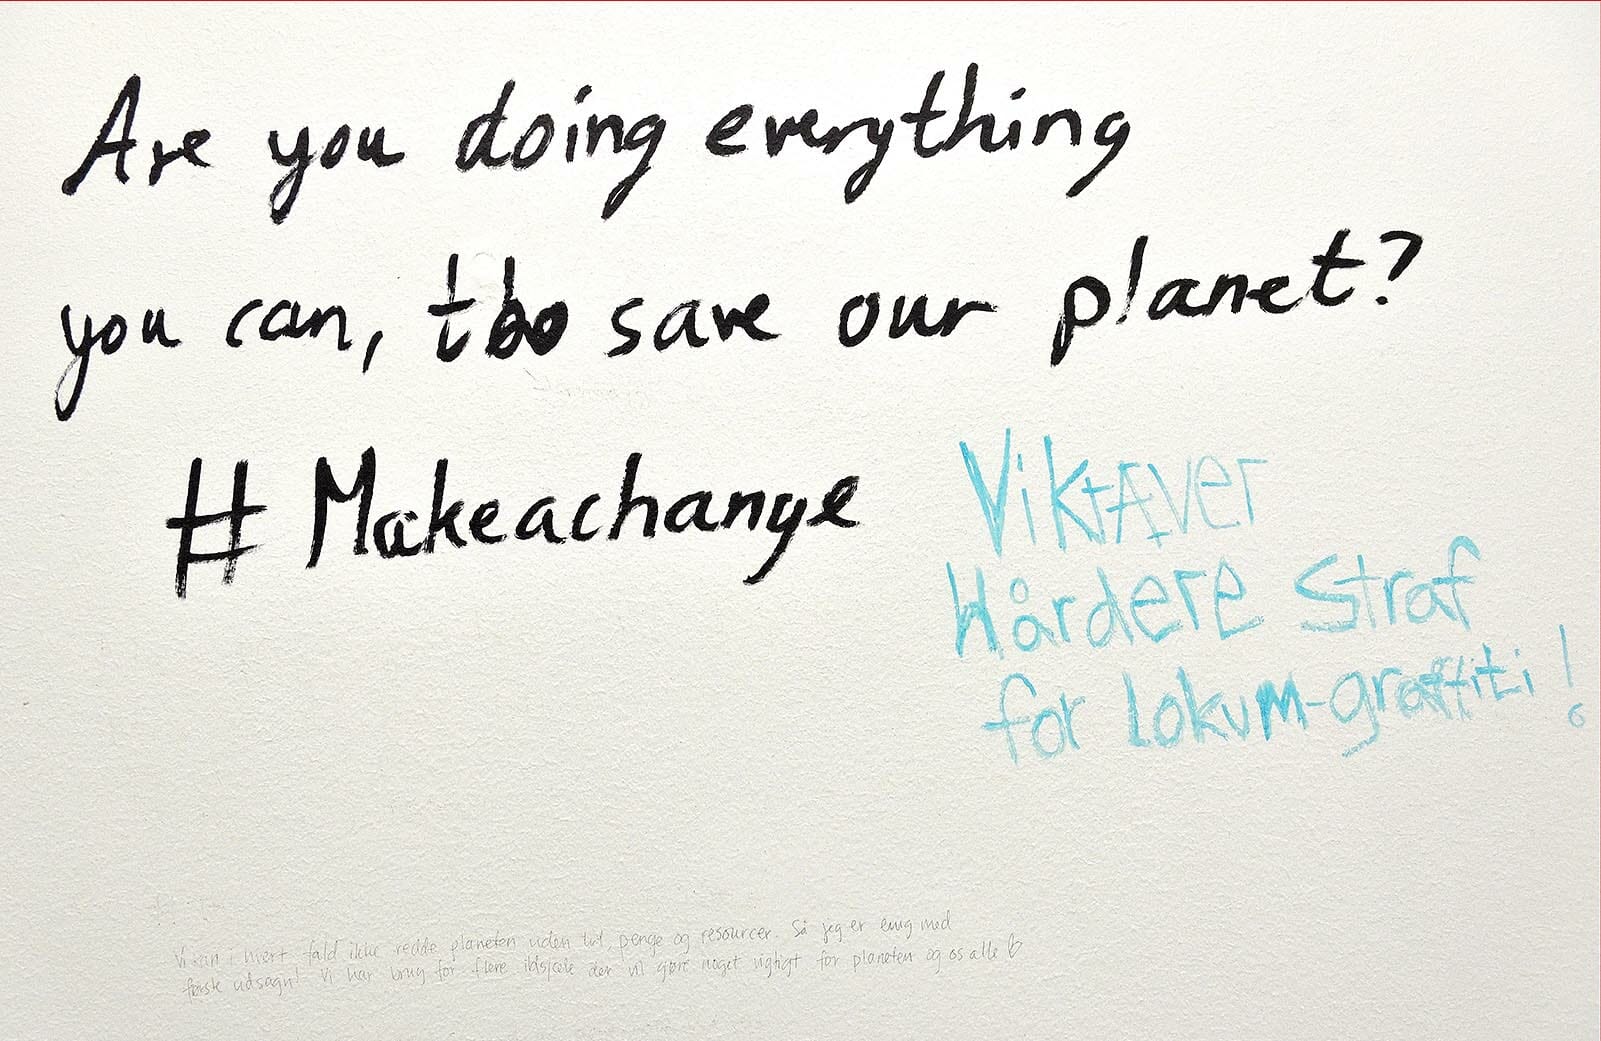 Are you doing everything
you can, to save our planet?
#Makeachange
Vi kræver
Hårdere straf
for lokum-graffiti!
Vi kan i hvert fald ikke redde planeten uden tid, penge og resourcer. Så jeg er enig med
første udsagn! Vi har brug for flere ildsjæle der vil gøre noget vigtigt for planeten og os alle